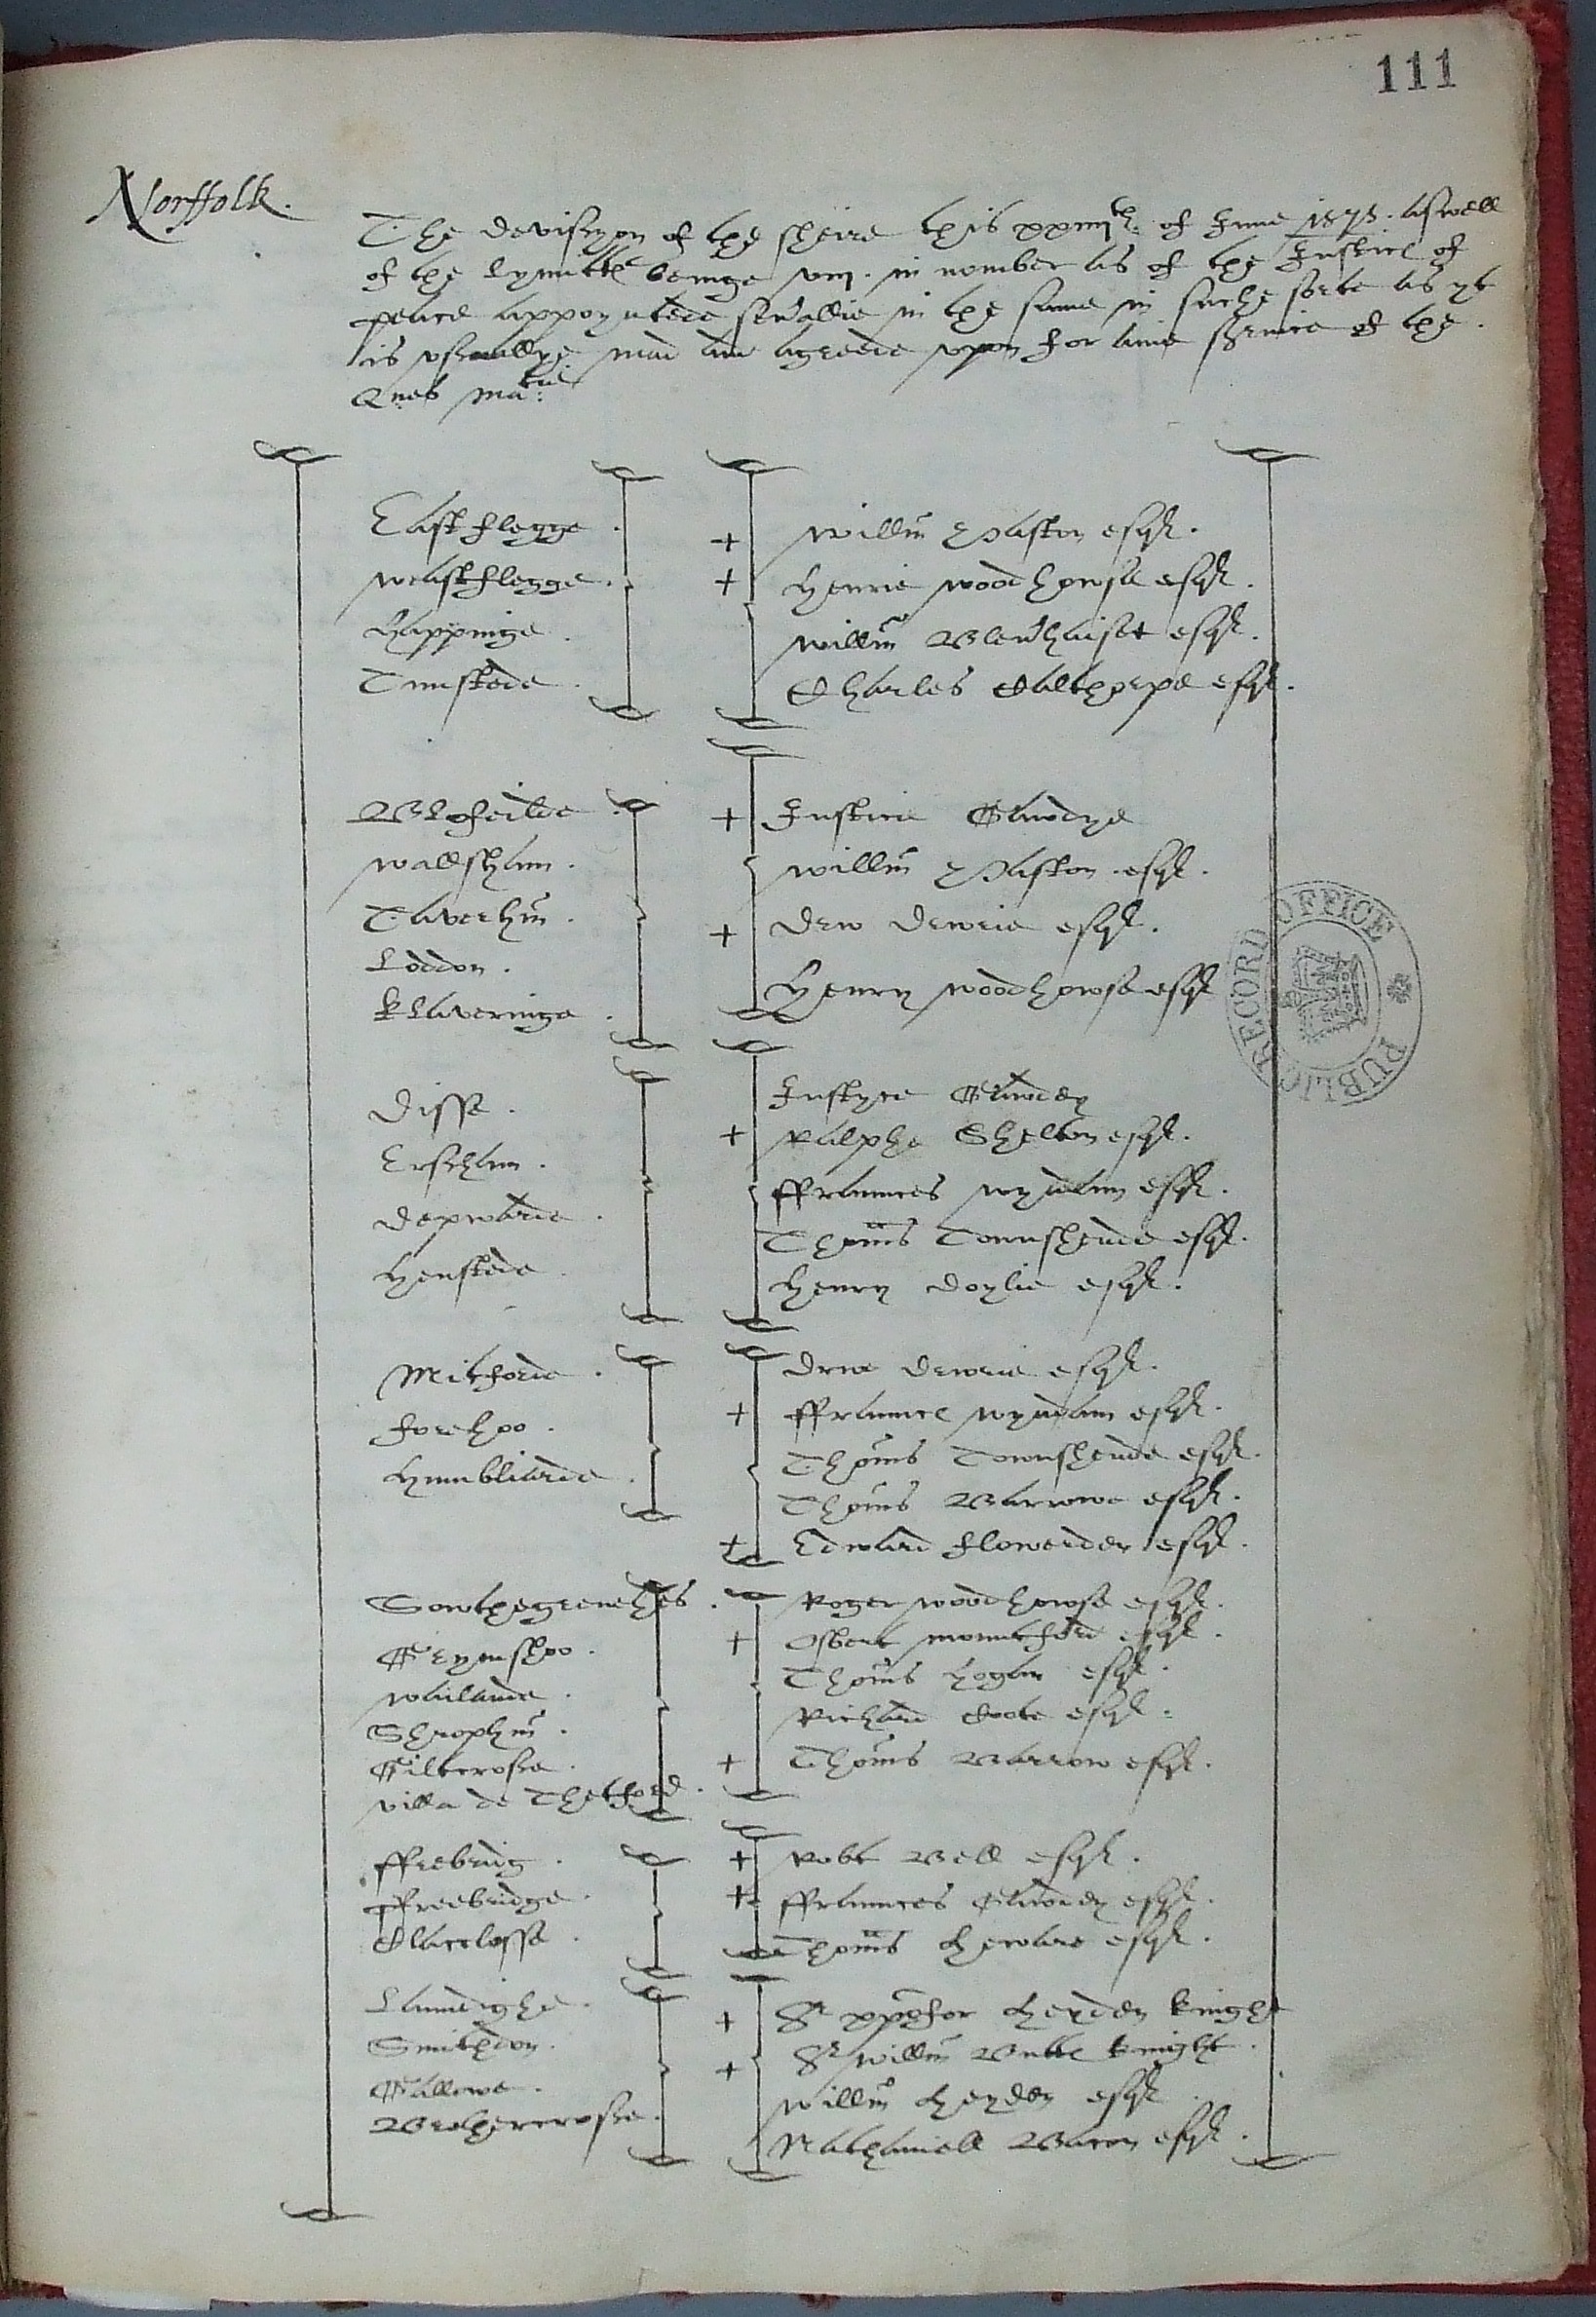 111
Norffolk.
The devisyon of the sheire this xxiiijth of June 1575. aswell
of the lymittes beinge viij. in nomber as of the Justices of
peace appoynted severallie in the same in suche sorte as yt
is vsuallye mad and agreede vpon for anie service of the
Ques Matie.
East flegge . + Willm Paston esqr.
West flegge . + Henrie Woodhowse esqr.
Happinge . Willm Blenhaiset esqr.
Tunstede . Charles Calthorpe esqr.
Blofeilde . + Justice Gawdye
Wallsham . Willm Paston esqr.
Taverhm . + Drw Drwrie esqr.
Loddon . Henry Woodhowse esqr
Klaveringe .
Disse . Justyce Gawdey
Ersham . + Ralphe Shelton esqr.
Depwade . Ffraunces Wyndam esqr.
Henstede . Thoms Townshende esqr.
Henry Doylie esqr.
Mitforde . Drue Drwrie esqr.
Forehoo . + Ffraunces Wyndam esqr.
Humbliarde . Thoms Townshende esqr.
Thoms Barrowe esqr.
+ Edward Flowerdey esqr.
Sowthegrenehes . Roger Woodhowse esqr.
Grymshoo . + Osbert Mountford esqr.
Wailande . Thoms Hogan esqr.
Shrophm . Richard Foote esqr.
Giltcrosse . + Thoms Barrow esqr.
Villa de Thetford .
Ffrebrug . + Robt Bell esqr.
Ffreebridge . + Ffraunces Gawdey esqr.
Clacclosse . Thoms Heward esqr.
Laundighe . + Sr Xpofor Heydon knight
Smithdon . + Sr Willm Butts knight .
Gallowe . Willm Heydon esqr
Brothercrosse . Nathaniell Bacon esqr.
PUBLIC RECORD OFFICE